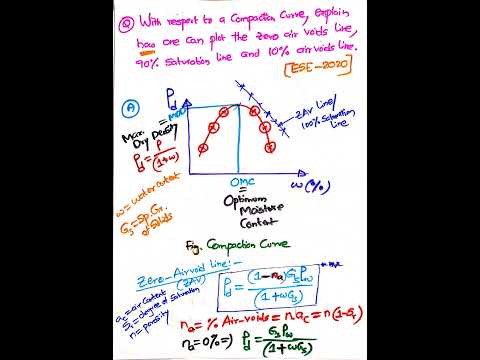 Q With respect to a Compaction Curve, explain
how one can plot the zero air voids line,
90% saturation line and 10% air voids line.
[ESE-2020]
A
ρd
MDD
=
Max.
Dry Density
ρd = ρ/(1+ω)
ω = water content
Gs = Sp. Gr. of Solids
ZAV Line/
100% Saturation
Line
OMC
ω(%)
=
Optimum
Moisture
Content
Fig. Compaction Curve
Zero-Airvoid Line:-
(ZAV)
ρd = (1-na)Gsρω/(1+ωGs)
ac = air content
Sr = degree of saturation
n = porosity
na = % Air-voids = nac = n(1-Sr)
na = 0% => ρd = Gsρω/(1+ωGs)